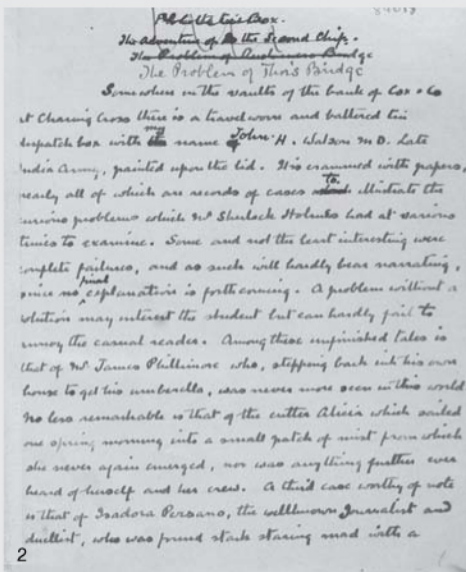 The Adventure of the Second Chip.
The Problem of Bridge
The Problem of Thor's Bridge
Somewhere in the vaults of the bank of Cox & Co
at Charing Cross there is a travelworn and battered tin
dispatch box with my name John. H. Watson M D. Late
India Army, painted upon the lid. It is crammed with papers,
nearly all of which are records of cases to illustrate the
curious problems which Mr Sherlock Holmes had at various
times to examine. Some and not the least interesting were
complete failures, and as such will hardly bear narrating,
since no final explanation is forthcoming. A problem without a
solution may interest the student but can hardly fail to
annoy the casual reader. Among these unfinished tales is
that of Mr. James Phillimore who, stepping back into his own
house to get his umbrella, was never more seen in this world
No less remarkable is that of the cutter Alicia which sailed
one spring morning into a small patch of mist from which
she never again emerged, nor was anything further ever
heard of herself and her crew. A third case worthy of note
is that of Isadora Persano, the wellknown Journalist and
duellist, who was found stark staring mad with a
2